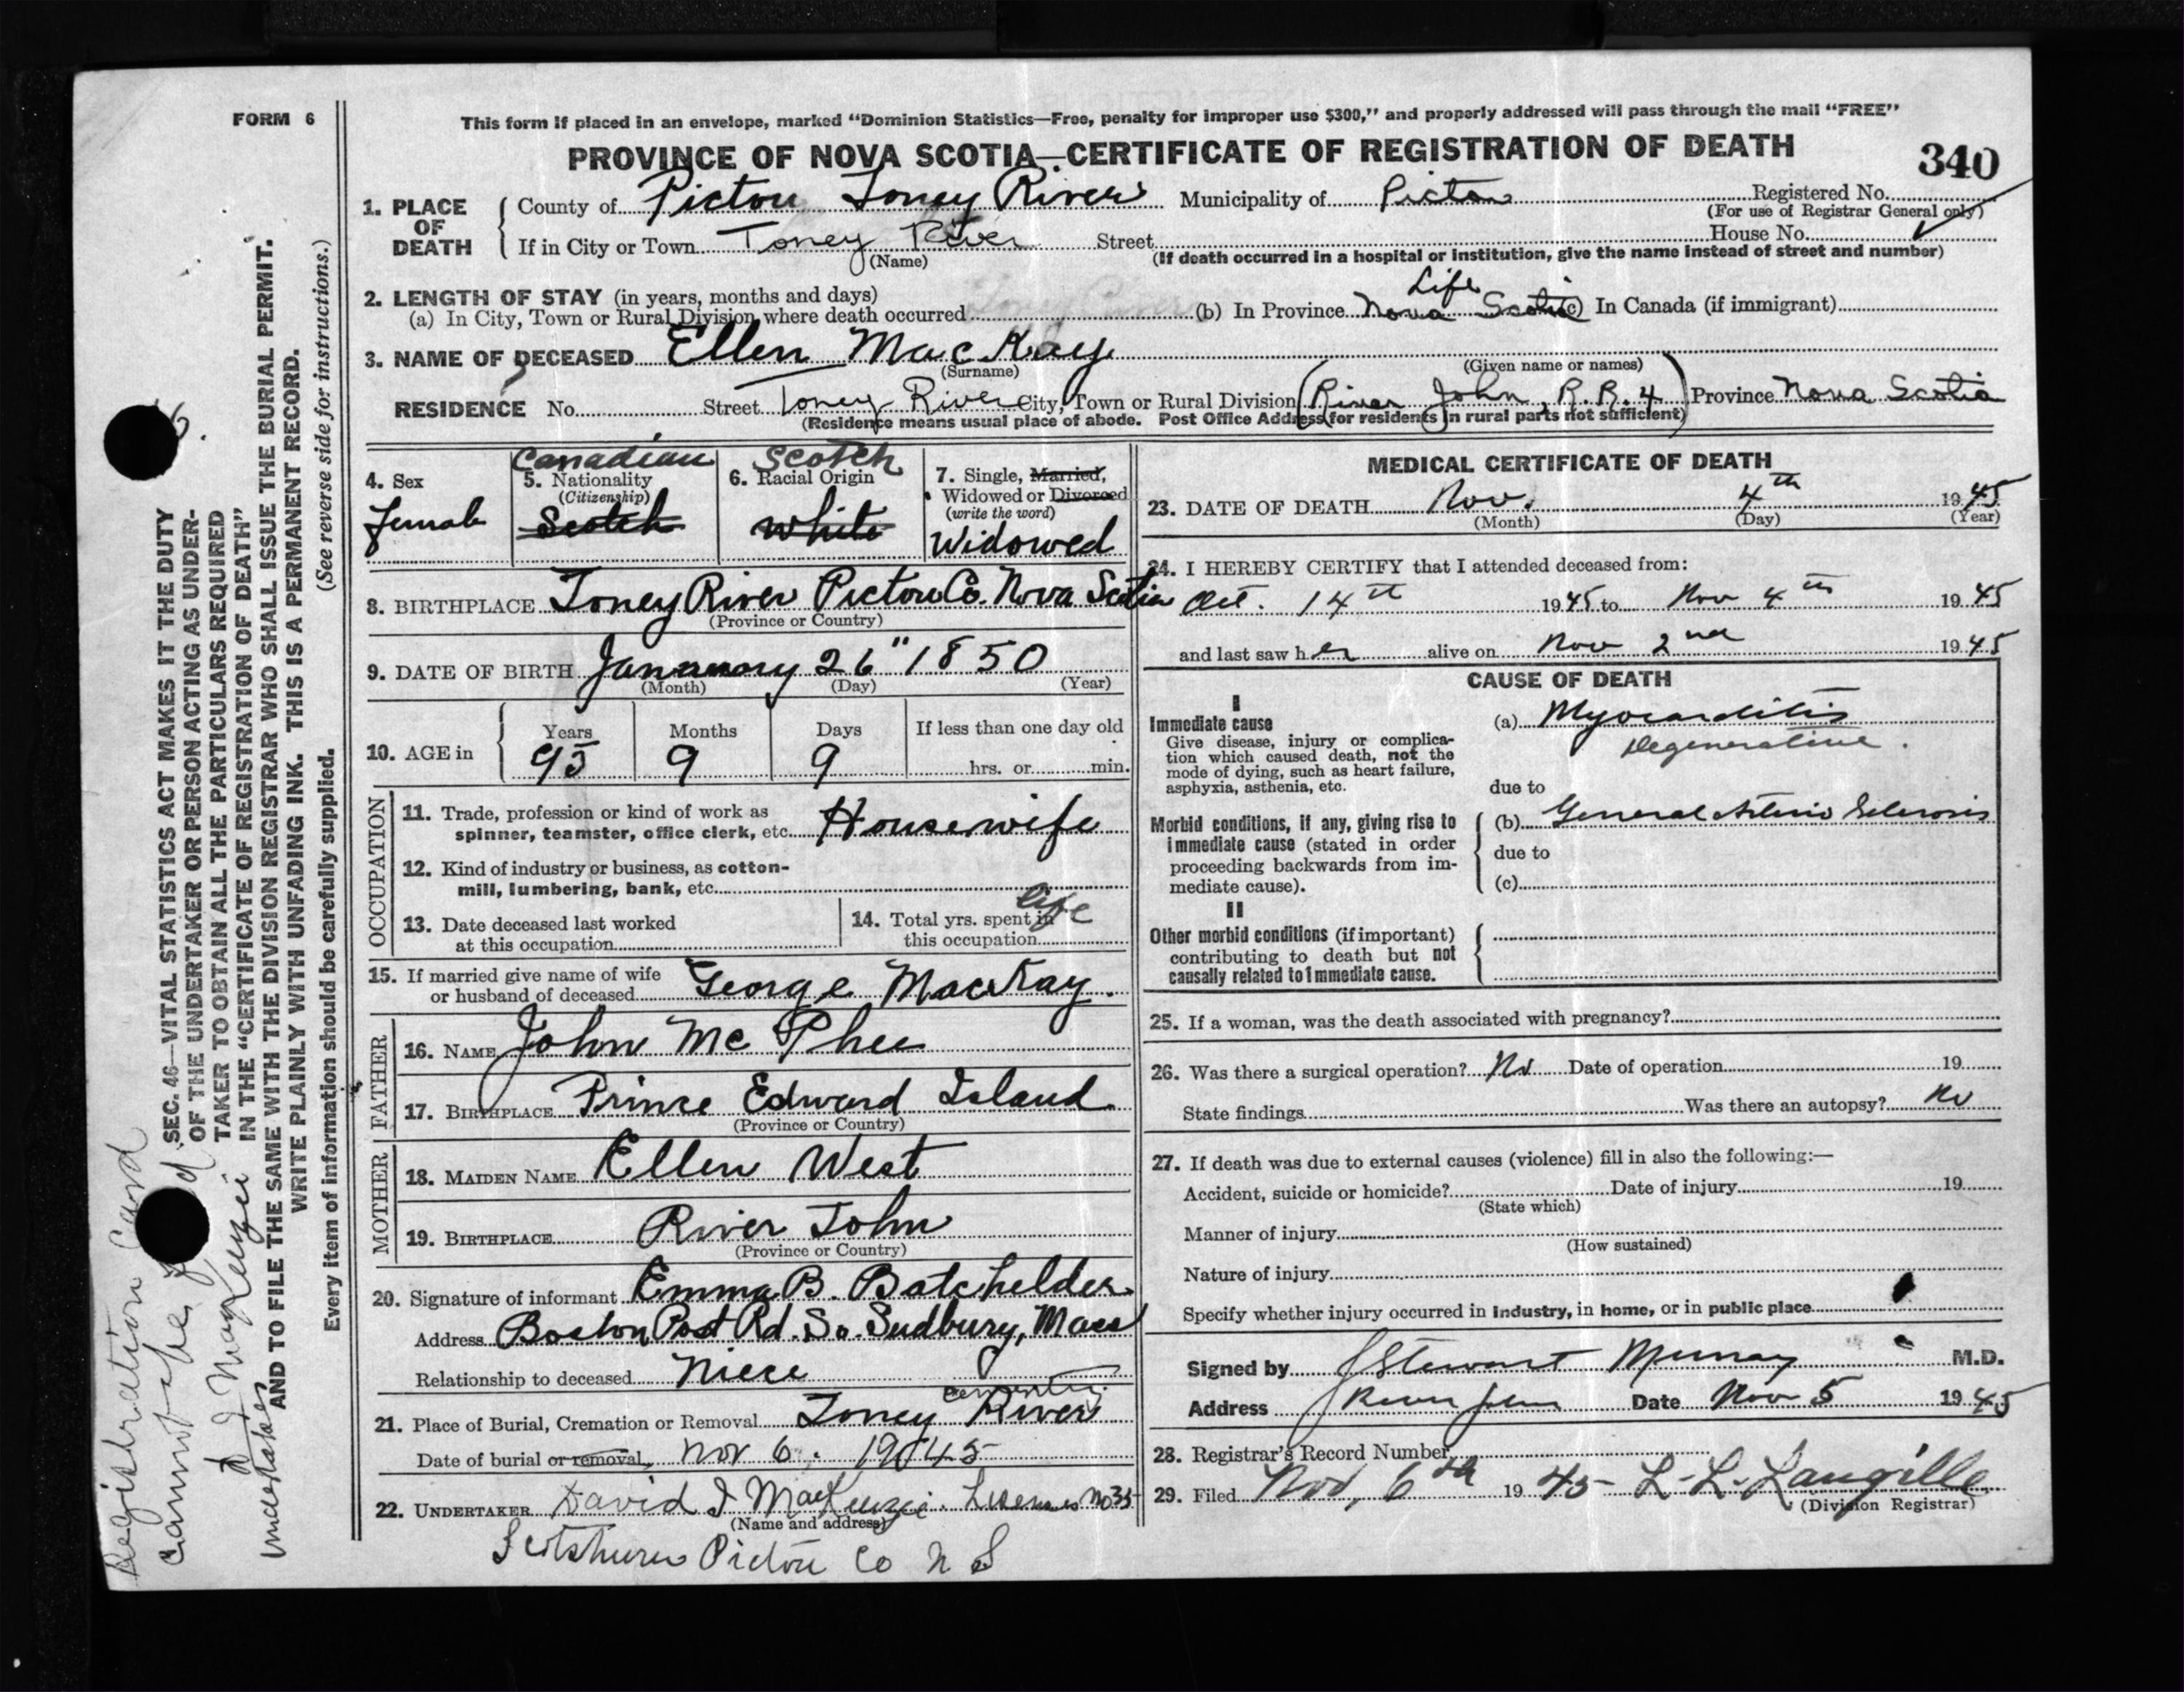 FORM 6
This form if placed in an envelope, marked “Dominion Statistics—Free, penalty for improper use $300,” and properly addressed will pass through the mail “FREE”
PROVINCE OF NOVA SCOTIA—CERTIFICATE OF REGISTRATION OF DEATH
340
1. PLACE OF DEATH
County of Pictou Toney River Municipality of Pictou Registered No.
(For use of Registrar General only)
If in City or Town Toney River Street House No.
(Name) (If death occurred in a hospital or institution, give the name instead of street and number)
2. LENGTH OF STAY (in years, months and days)
Life
(a) In City, Town or Rural Division where death occurred (b) In Province Nova Scotia (c) In Canada (if immigrant)
3. NAME OF DECEASED Ellen MacKay
(Surname) (Given name or names)
RESIDENCE No. Street Toney River City, Town or Rural Division (River John, R.R. 4) Province Nova Scotia
(Residence means usual place of abode. Post Office Address for residents in rural parts not sufficient)
4. Sex
female
Canadian
5. Nationality
(Citizenship)
Scotch
Scotch
6. Racial Origin
White
7. Single, Married,
Widowed or Divorced
(write the word)
Widowed
8. BIRTHPLACE Toney River Pictou Co. Nova Scotia
(Province or Country)
9. DATE OF BIRTH January 26" 1850
(Month) (Day) (Year)
10. AGE in
Years Months Days If less than one day old
95 9 9 hrs. or min.
OCCUPATION
11. Trade, profession or kind of work as
spinner, teamster, office clerk, etc. Housewife
12. Kind of industry or business, as cotton-
mill, lumbering, bank, etc.
13. Date deceased last worked
at this occupation
14. Total yrs. spent in
this occupation life
15. If married give name of wife
or husband of deceased George MacKay.
FATHER
16. NAME John Mc Phee
17. BIRTHPLACE Prince Edward Island
(Province or Country)
MOTHER
18. MAIDEN NAME Ellen West
19. BIRTHPLACE River John
(Province or Country)
20. Signature of informant Emma B. Batchelder
Address Boston Post Rd. So. Sudbury, Mass
Relationship to deceased Niece
21. Place of Burial, Cremation or Removal Toney River cemetery
Date of burial or removal Nov 6. 1945
22. UNDERTAKER David J MacKenzie. No 35
(Name and address)
Pictou Co N S
MEDICAL CERTIFICATE OF DEATH
23. DATE OF DEATH Nov. 4th 1945
(Month) (Day) (Year)
24. I HEREBY CERTIFY that I attended deceased from:
Oct. 14th 1945 to Nov 4th 1945
and last saw her alive on Nov 2nd 1945
CAUSE OF DEATH
I
Immediate cause
Give disease, injury or complica-
tion which caused death, not the
mode of dying, such as heart failure,
asphyxia, asthenia, etc.
(a) Myocarditis
Degenerative.
due to
Morbid conditions, if any, giving rise to
immediate cause (stated in order
proceeding backwards from im-
mediate cause).
(b) General Arterio Sclerosis
due to
(c)
II
Other morbid conditions (if important)
contributing to death but not
causally related to immediate cause.
25. If a woman, was the death associated with pregnancy?
26. Was there a surgical operation? No Date of operation 19
State findings Was there an autopsy? No
27. If death was due to external causes (violence) fill in also the following:—
Accident, suicide or homicide? Date of injury 19
(State which)
Manner of injury
(How sustained)
Nature of injury
Specify whether injury occurred in industry, in home, or in public place
Signed by J Stewart Murray M.D.
Address River John Date Nov 5 1945
28. Registrar's Record Number
29. Filed Nov. 6th 1945 L. L. Langille
(Division Registrar)
SEC. 46—VITAL STATISTICS ACT MAKES IT THE DUTY
OF THE UNDERTAKER OR PERSON ACTING AS UNDER-
TAKER TO OBTAIN ALL THE PARTICULARS REQUIRED
IN THE “CERTIFICATE OF REGISTRATION OF DEATH”
AND TO FILE THE SAME WITH THE DIVISION REGISTRAR WHO SHALL ISSUE THE BURIAL PERMIT.
WRITE PLAINLY WITH UNFADING INK. THIS IS A PERMANENT RECORD.
Every item of information should be carefully supplied. (See reverse side for instructions.)
Registration Card
cannot be
D J MacKenzie
Undertaker